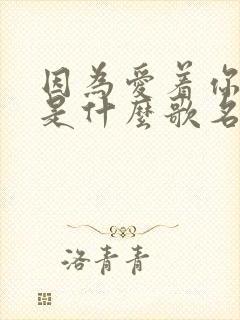 因為愛着你
是什麼歌名
洛青青